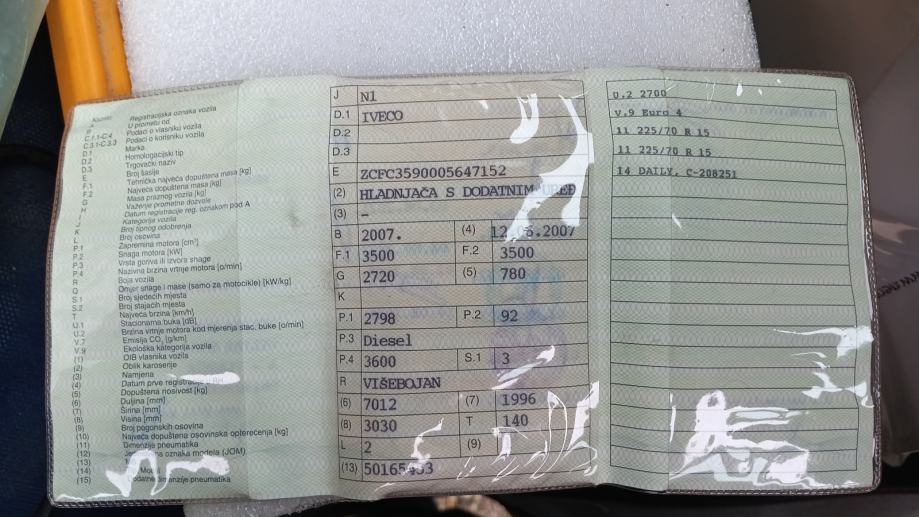 Registracijska oznaka vozila
A U prometu od
B
C.1.1-C.4 Podaci o vlasniku vozila
C.3.1-C.3.3 Podaci o korisniku vozila
D.1 Marka
D.2 Homologacijski tip
D.3 Trgovački naziv
E Broj šasije
F.1 Tehnička najveća dopuštena masa [kg]
F.2 Najveća dopuštena masa [kg]
G Masa praznog vozila [kg]
H Važenje prometne dozvole
I Datum registracije reg. oznakom pod A
J Kategorija vozila
K Broj tipnog odobrenja
L Broj osovina
P.1 Zapremina motora [cm³]
P.2 Snaga motora [kW]
P.3 Vrsta goriva ili izvora snage
P.4 Nazivna brzina vrtnje motora [o/min]
R Boja vozila
Q Omjer snage i mase (samo za motocikle) [kW/kg]
S.1 Broj sjedećih mjesta
S.2 Broj stajaćih mjesta
T Najveća brzina [km/h]
U.1 Stacionarna buka [dB]
U.2 Brzina vrtnje motora kod mjerenja stac. buke [o/min]
V.7 Emisija CO₂ [g/km]
V.9 Ekološka kategorija vozila
(1) OIB vlasnika vozila
(2) Oblik karoserije
(3) Namjena
(4) Datum prve registracije u RH
(5) Dopuštena nosivost [kg]
(6) Duljina [mm]
(7) Širina [mm]
(8) Visina [mm]
(9) Broj pogonskih osovina
(10) Najveća dopuštena osovinska opterećenja [kg]
(11) Dimenzije pneumatika
(12) oznaka modela (JOM)
(13)
(14) Model
(15) Dodatne dimenzije pneumatika
J N1
D.1 IVECO
D.2
D.3
E ZCFC3590005647152
(2) HLADNJAČA S DODATNIM UREĐ
(3) –
B 2007. (4) 12.06.2007
F.1 3500 F.2 3500
G 2720 (5) 780
K
P.1 2798 P.2 92
P.3 Diesel
P.4 3600 S.1 3
R VIŠEBOJAN
(6) 7012 (7) 1996
(8) 3030 T 140
L 2 (9)
(13)
U.2 2700
V.9 Euro 4
11 225/70 R 15
11 225/70 R 15
14 DAILY, C-208251